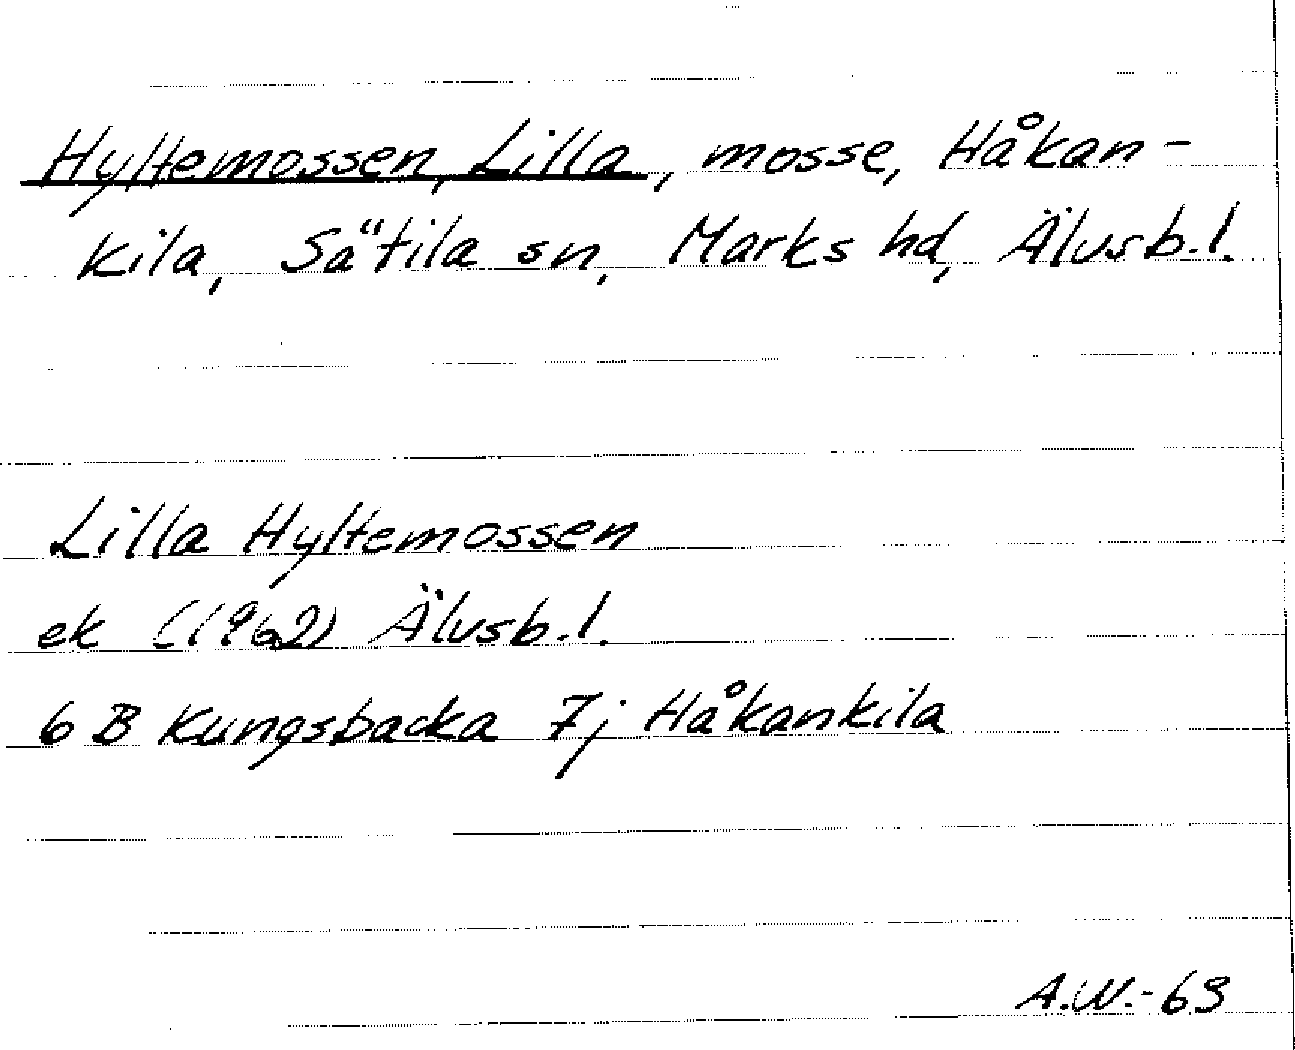 Hyltemossen, Lilla, mosse, Håkan-
kila, Sätila sn, Marks hd, Älvsb.l.
Lilla Hyltemossen
ek (1962) Älvsb.l.
6 B Kungsbacka 7j Håkankila
A.W.-63